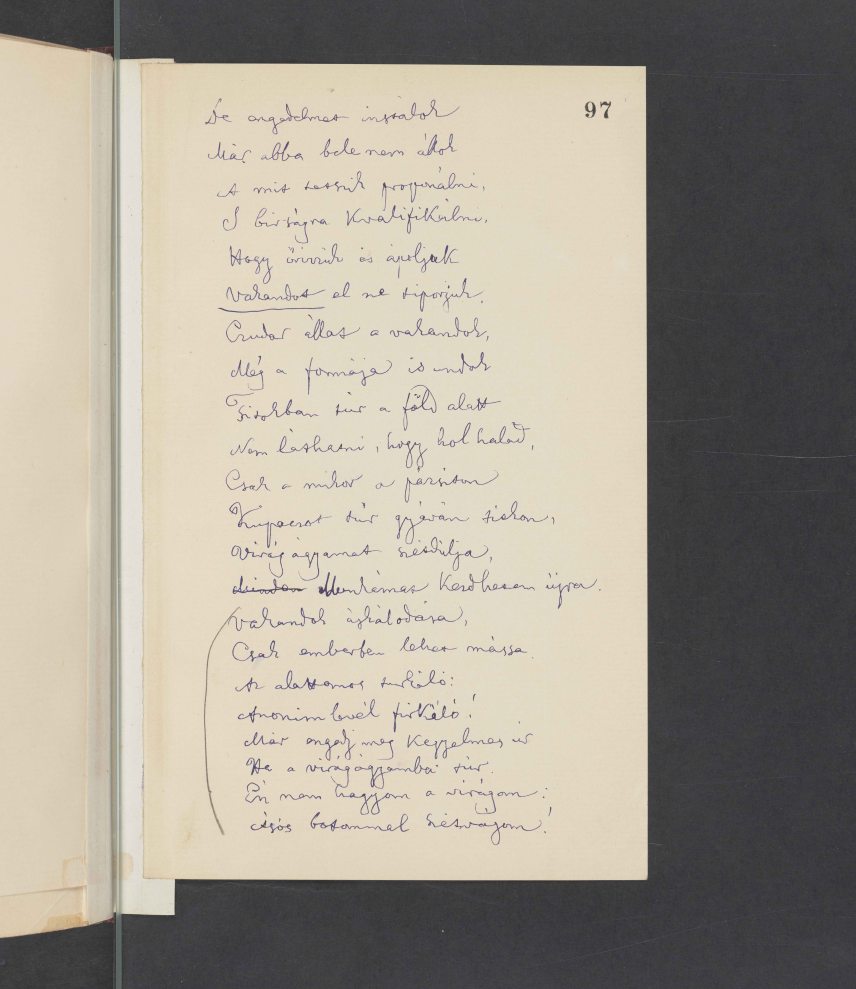 97
De engedelmet instálok
Már abba bele nem állok
A mit tetszik proponálni,
S birságra kvalifikálni.
Hogy őrizzük és ápoljuk
Vakandot el ne tiporjuk.
Czudar állat a vakandok,
Még a formája is undok
Titokban túr a föld alatt
Nem láthatni, hogy hol halad,
Csak a mikor a pázsiton
Kupaczot túr gyáván titkon,
Virágágyamat szétdulja,
Minden Munkámat kezdhetem újra.
Vakandok áskálodása,
Csak emberben lehet mássa.
Az alattomos turkáló:
Anonim levél firkáló!
Már engedj meg kegyelmes úr
Ha a virágágyamba túr.
Én nem hagyom a virágom:
Ásós botommal szétvágom!